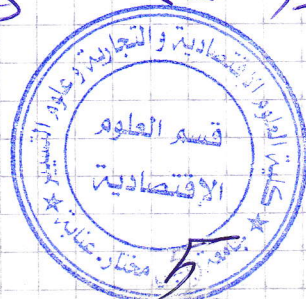 كلية العلوم الاقتصادية والتجارية وعلوم التسيير
قسم العلوم
الاقتصادية
جامعة
مختار. عنابة